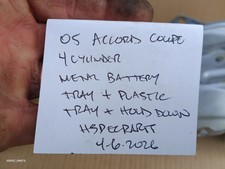 05 ACCORD COUPE
4 CYLINDER
METAL BATTERY
TRAY + PLASTIC
TRAY + HOLD DOWN
HSPECPARTS
4-6-2026